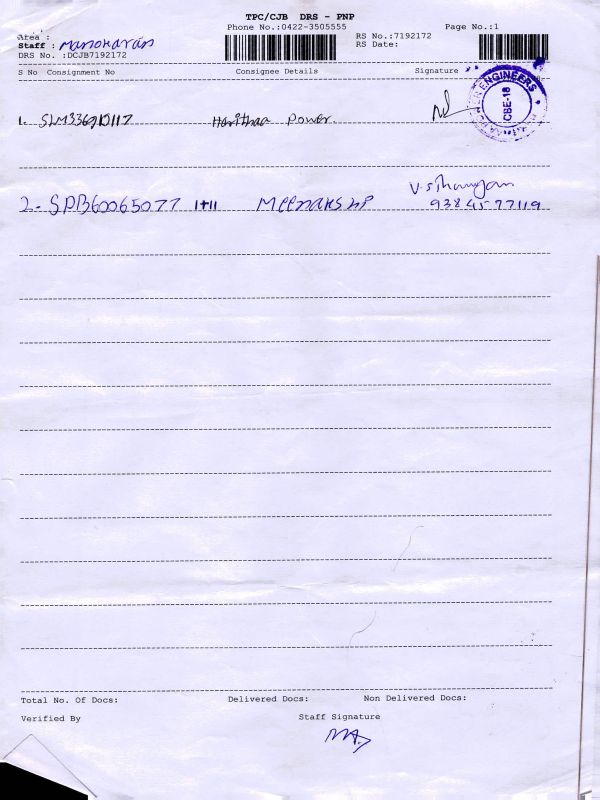 TPC/CJB DRS - PNP
Phone No.:0422-3505555 Page No.:1
Area :
Staff : Manoharan
RS No.:7192172
DRS No. :DCJB7192172
RS Date:
S No Consignment No Consignee Details Signature
1. Harithaa Power
POWER ENGINEERS
CBE-18
2. SPB60065077 1+11 Meenakshi
9384577119
Total No. Of Docs: Delivered Docs: Non Delivered Docs:
Verified By Staff Signature